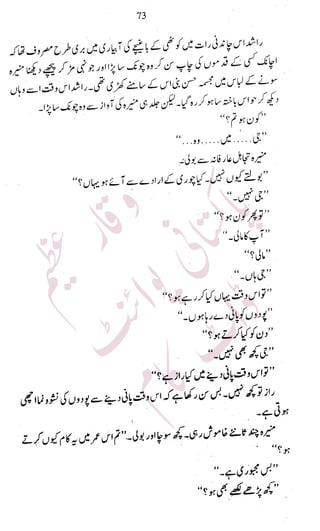 73
راشد اس چاندنی رات میں کوٹھی کے باغیچے کی آبیاری میں بری طرح مصروف تھا کہ
اچانک کسی کے قدموں کی چاپ سن کر وہ چونک سا پڑا اور جونہی مڑ کر پیچھے دیکھا منیرہ
سونے کے لباس میں مجسمہ حسن بنی اس کے سامنے کھڑی تھی۔ راشد اس وقت اسے وہاں
دیکھ کر حواس باختہ سا ہو کر رہ گیا۔ لیکن جلد ہی منیرہ کی آواز سے وہ چونک سا پڑا۔
”کون ہو تم؟“
”جی ..... میں ..... وہ ...“
منیرہ تجاہل عارفانہ سے بولی۔
”بولتے کیوں نہیں۔ کیا چوری کے ارادے سے آئے ہو یہاں؟“
”جی نہیں۔“
”تو پھر کون ہو؟“
”آپ کا مالی۔“
”مالی؟“
”جی ہاں۔“
”تو اس وقت یہاں کیا کر رہے ہو؟“
”پودوں کو پانی دے رہا ہوں۔“
”دن کو کیا کرتے ہو؟“
”جی کچھ بھی نہیں۔“
”تو اس وقت پانی دینے میں کیا راز ہے؟“
”راز تو کچھ نہیں۔ بس سن رکھا ہے کہ اس وقت پانی دینے سے پودوں کی نشوونما اچھی
ہوتی ہے۔
منیرہ چند ثانئے خاموش رہی۔ کچھ سوچا اور بولی۔ ”تم اس عمر میں یہ کام کیوں کرتے
ہو؟“
”بس مجبوری ہے۔“
”کچھ پڑھے لکھے بھی ہو؟“
وقار عظیم
پاکستانی پوائنٹ
ڈاٹ کام